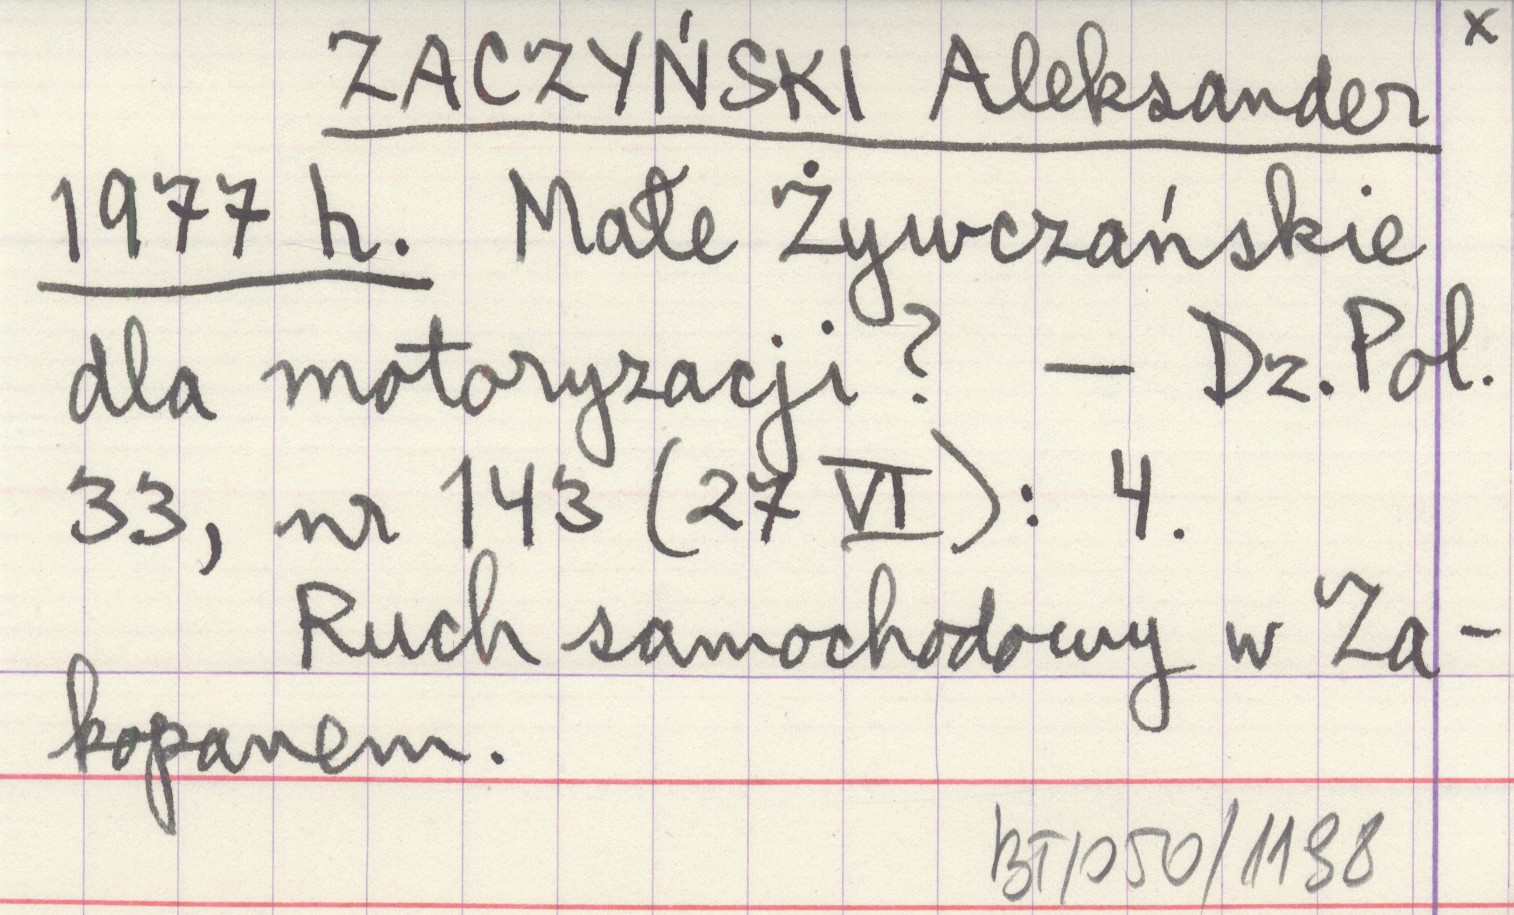 x
ZACZYŃSKI Aleksander
1977 h. Małe Żywczańskie
dla motoryzacji? — Dz. Pol.
33, nr 143 (27 VI): 4.
Ruch samochodowy w Za-
kopanem.
BT/050/1198